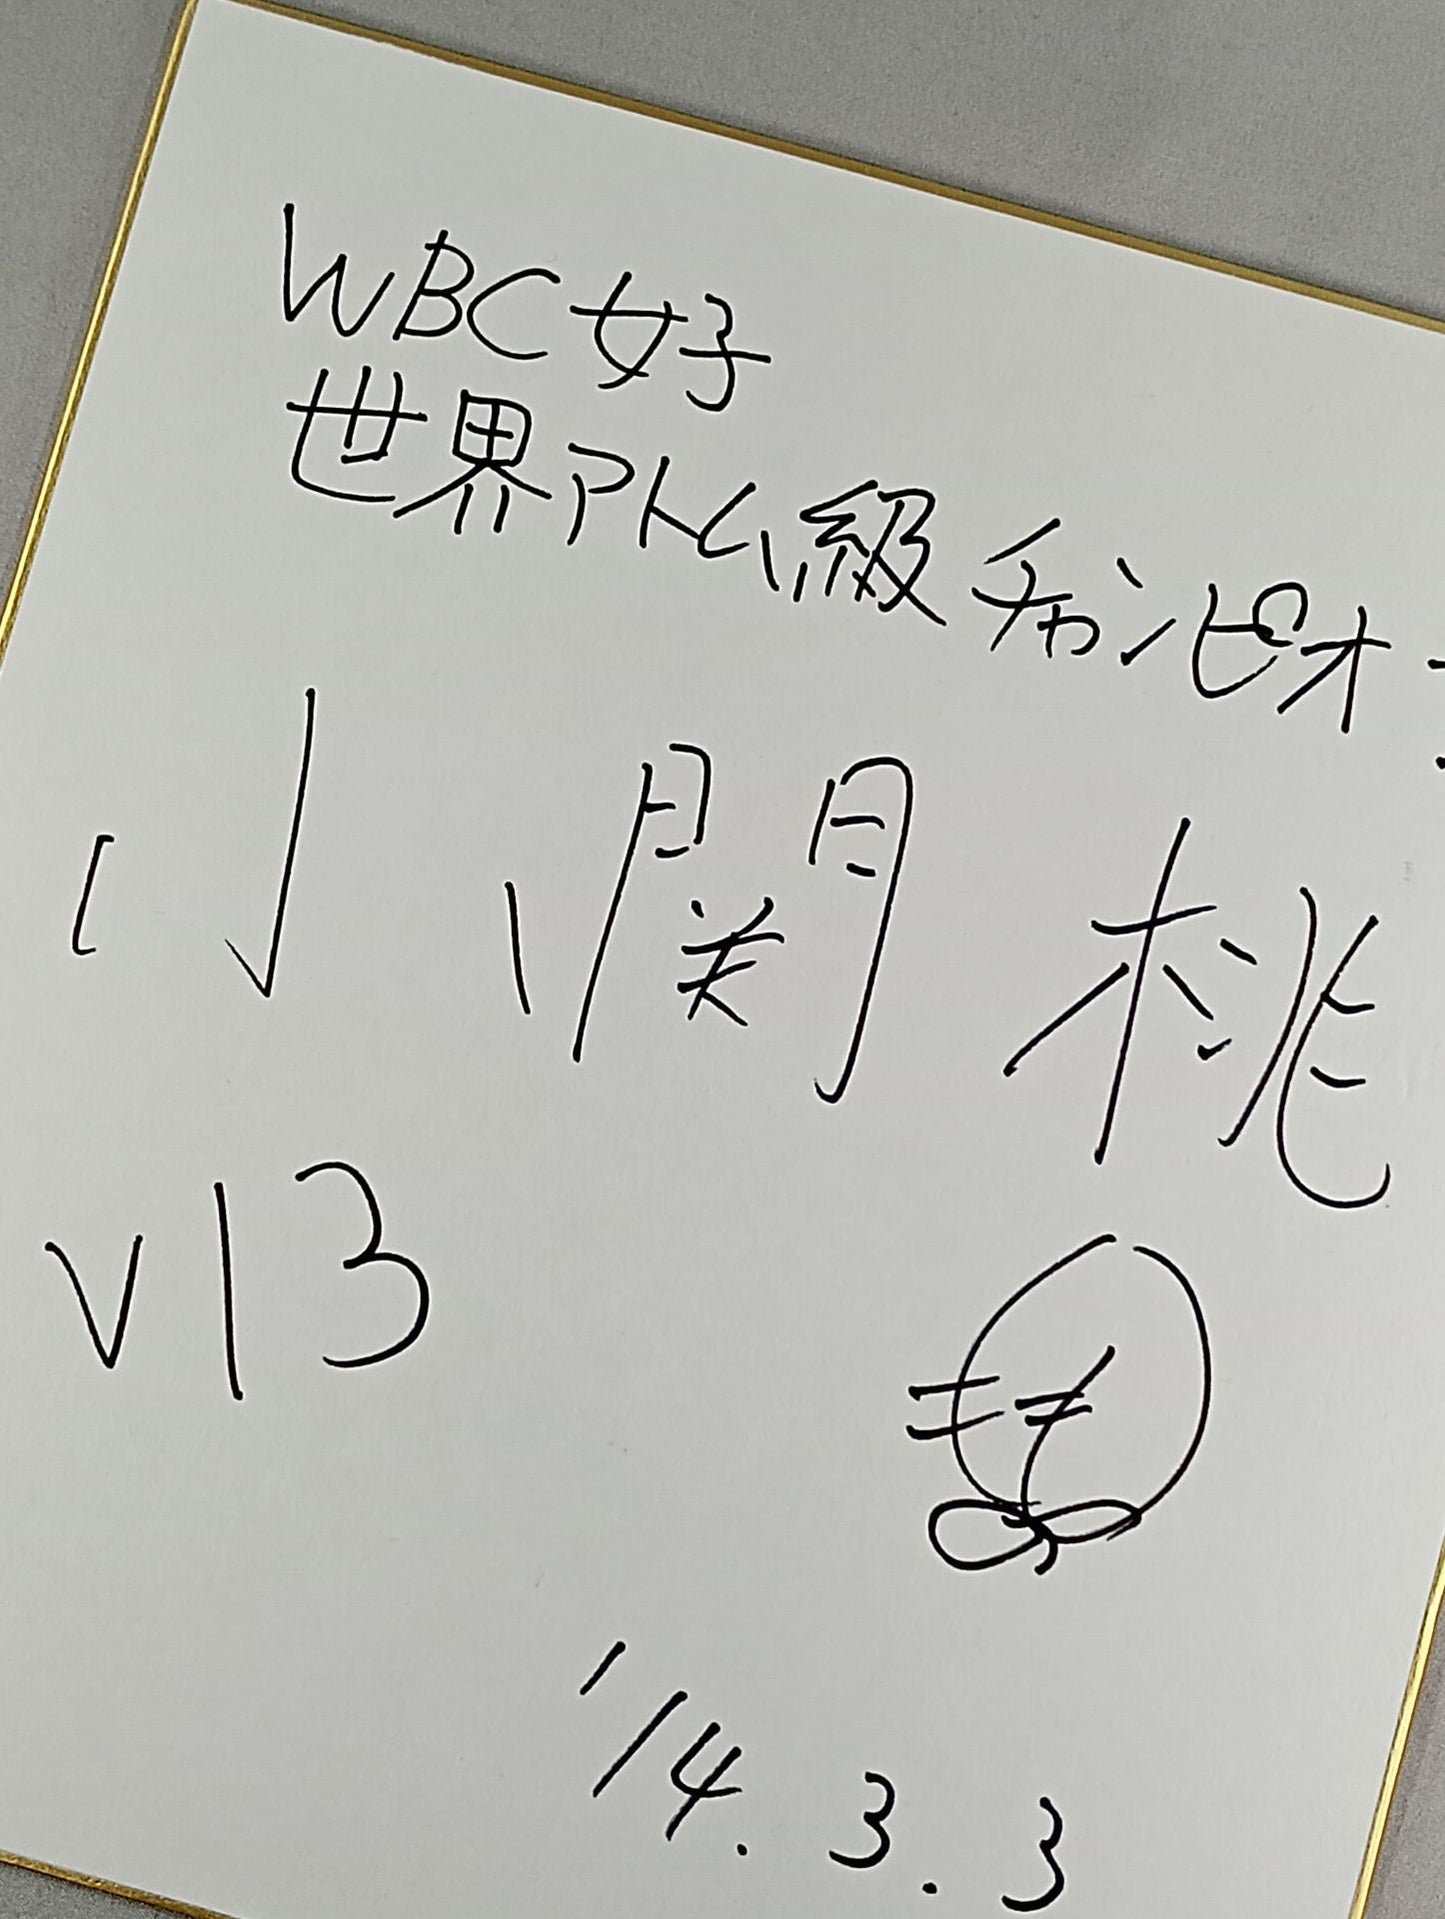 WBC女子
世界アトム級チャンピオン
小関桃
V13
'14.3.3